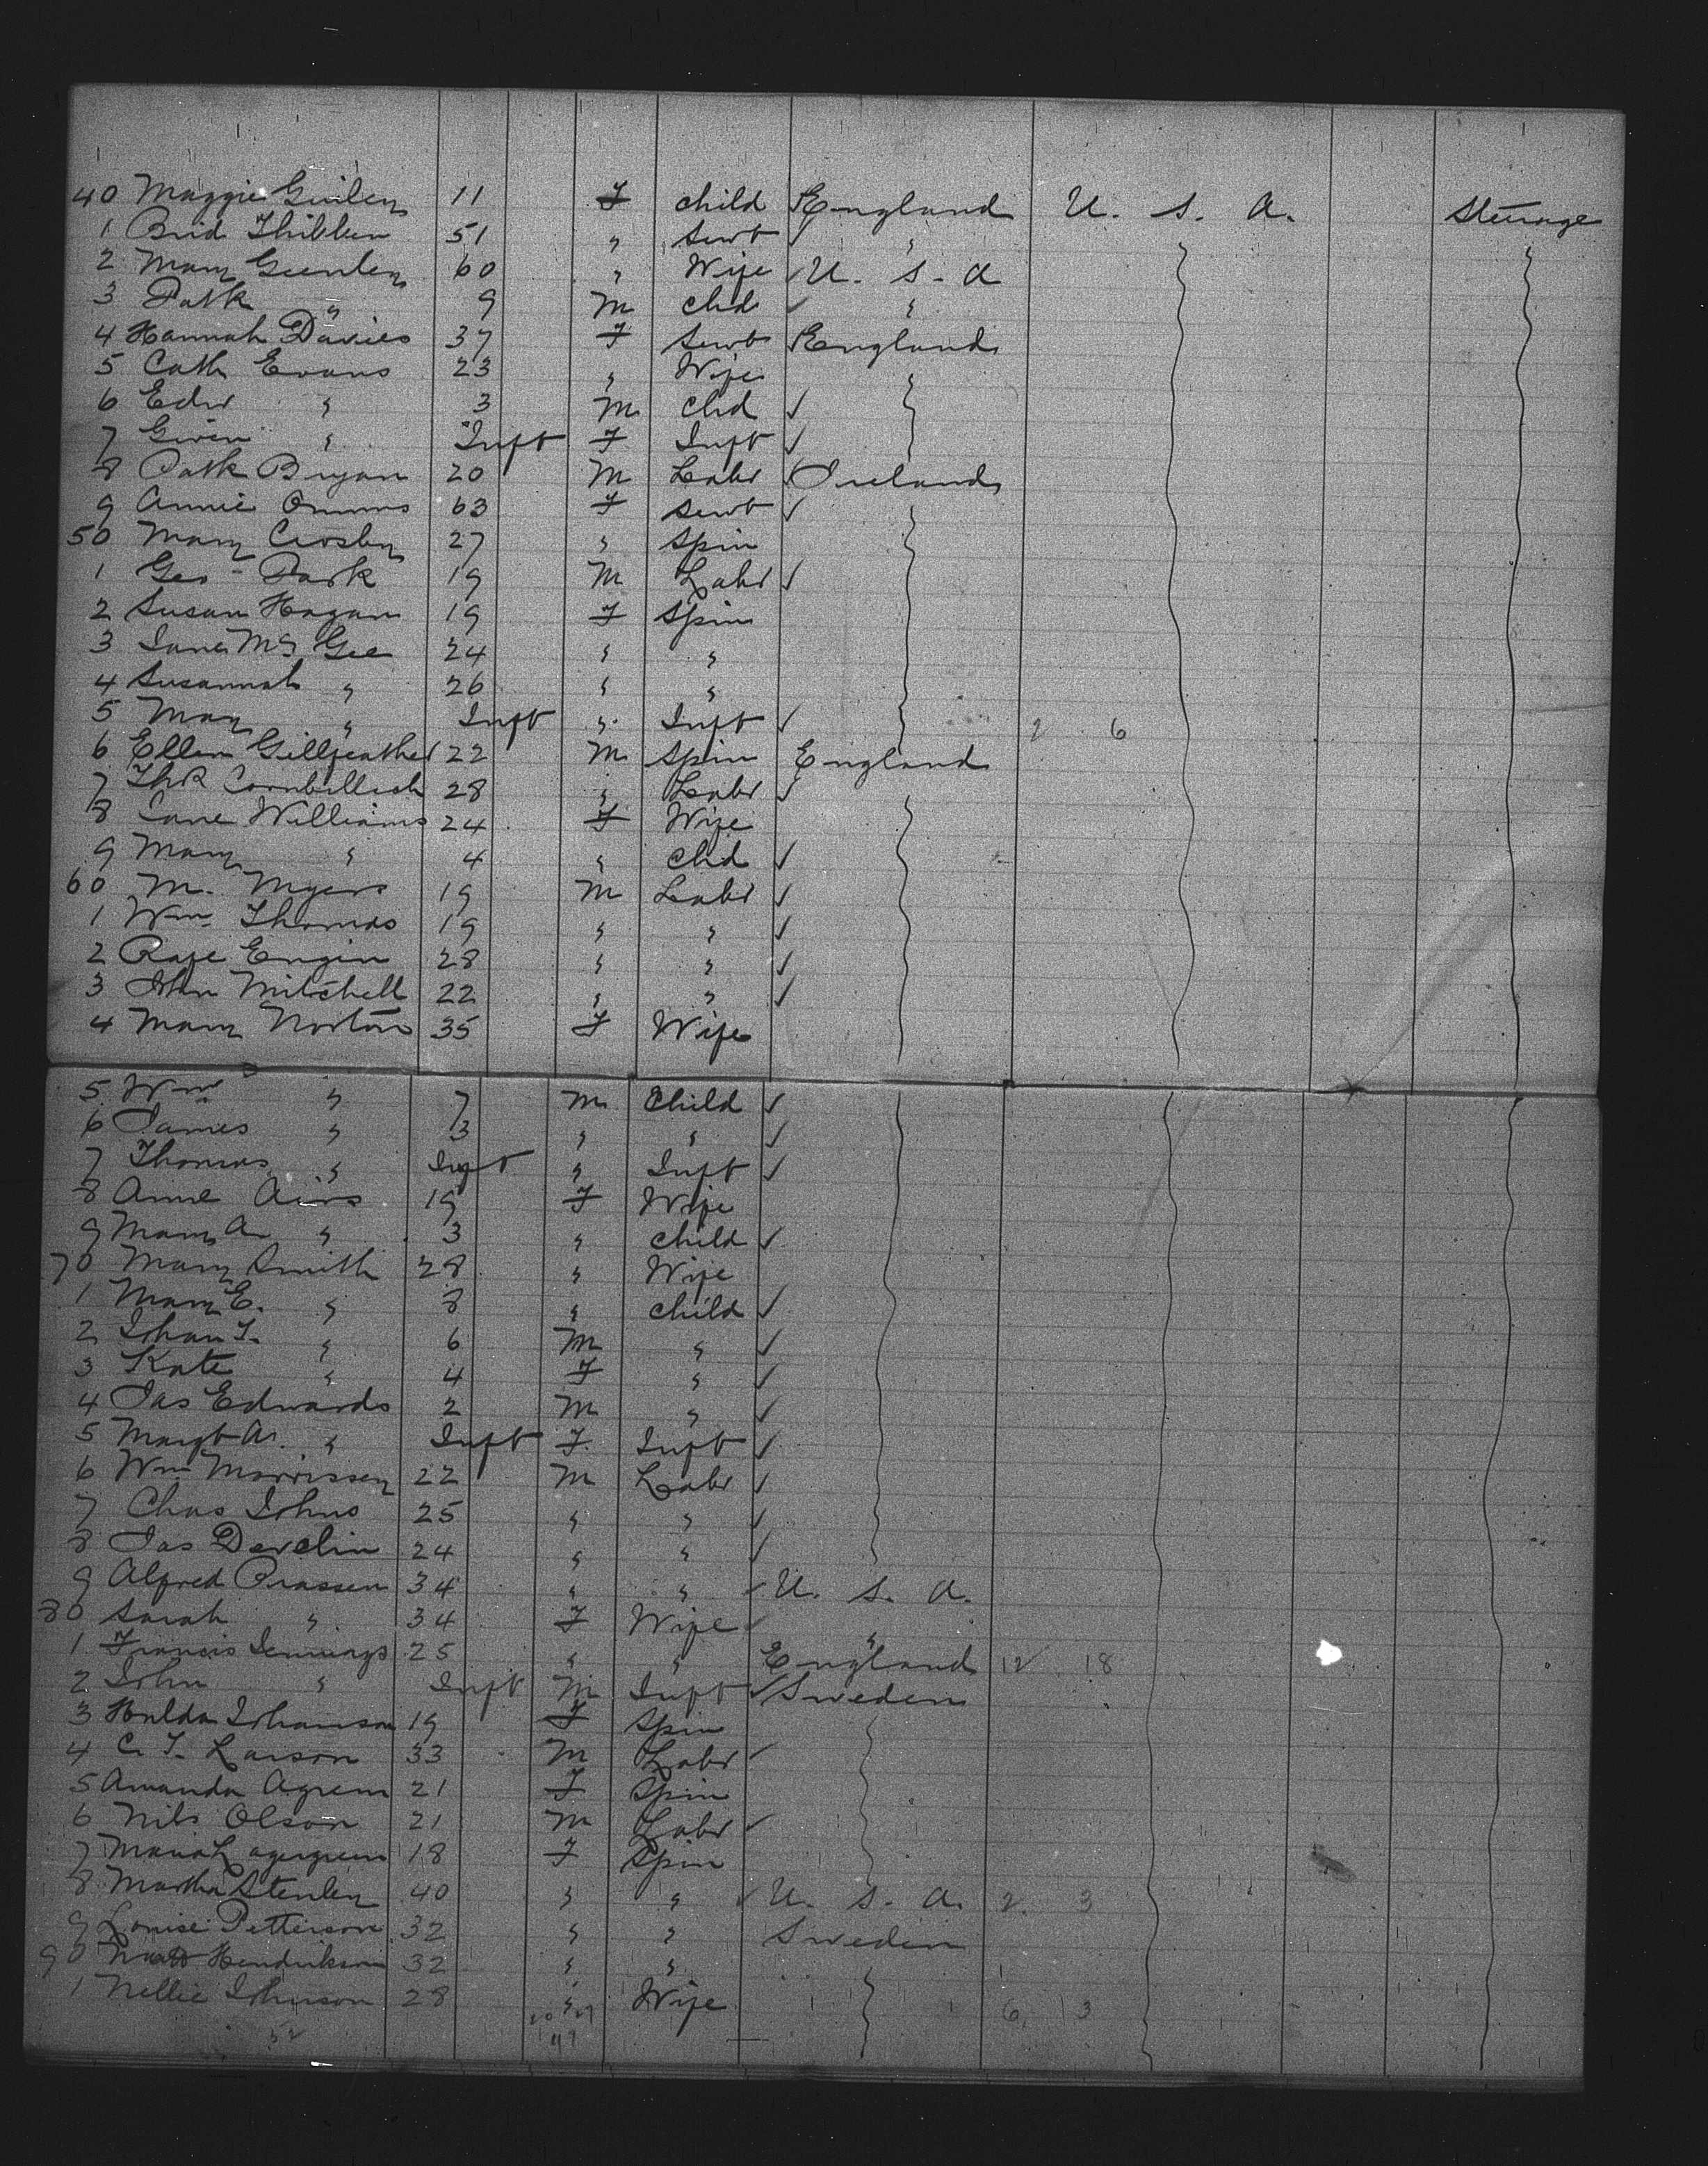 40 Maggie 11 F child England U. S. A. Steerage
1 Brid 51 " Servt "
2 Mary 60 " Wife U. S. A
3 Patk " 9 M Chd "
4 Hannah Davies 37 F Servt England
5 Cath Evans 23 " Wife "
6 Edw " 3 M Chd
7 Gwen " Inft F Inft
8 Patk Bryan 20 M Labr Ireland
9 Annie 63 F Servt
50 Mary Crosby 27 " Spin
1 Geo Park 19 M Labr
2 Susan Hagan 19 F Spin
3 Jane McGee 24 " "
4 Susannah " 26 " "
5 Mary " Inft " Inft 2 6
6 Ellen Gillfeather 22 M Spin England
7 28 " Labr
8 Jane Williams 24 F Wife
9 Mary " 4 " Chd
60 M. Myers 19 M Labr
1 Wm. Thomas 19 " "
2 28 " "
3 John Mitchell 22 " "
4 Mary Norton 35 F Wife
5 Wm " 7 M Child
6 James " 3 " "
7 Thomas " Inft " Inft
8 Anne Airs 19 F Wife
9 Mary A. " 3 " child
70 Mary Smith 28 " Wife
1 Mary E. " 8 " child
2 " 6 M "
3 Kate " 4 F "
4 Jas Edwards 2 M "
5 Margt A. " Inft F Inft
6 Wm Morrissey 22 M Labr
7 Chas Johns 25 " "
8 Jas Devlin 24 " "
9 Alfred 34 " " U. S. A.
80 Sarah " 34 F Wife "
1 Francis Jennings 25 " " England 12 18
2 John " Inft M Inft Sweden
3 Hulda Johanson 19 F Spin
4 C. J. Larson 33 M Labr
5 Amanda Agren 21 F Spin
6 Nils Olson 21 M Labr
7 Maria Lagergren 18 F Spin
8 Martha Stenley 40 " " U. S. A. 2 3
9 Louise Petterson 32 " " Sweden
90 Hendrikson 32 " "
1 Nellie Johnson 28 " Wife 6 13